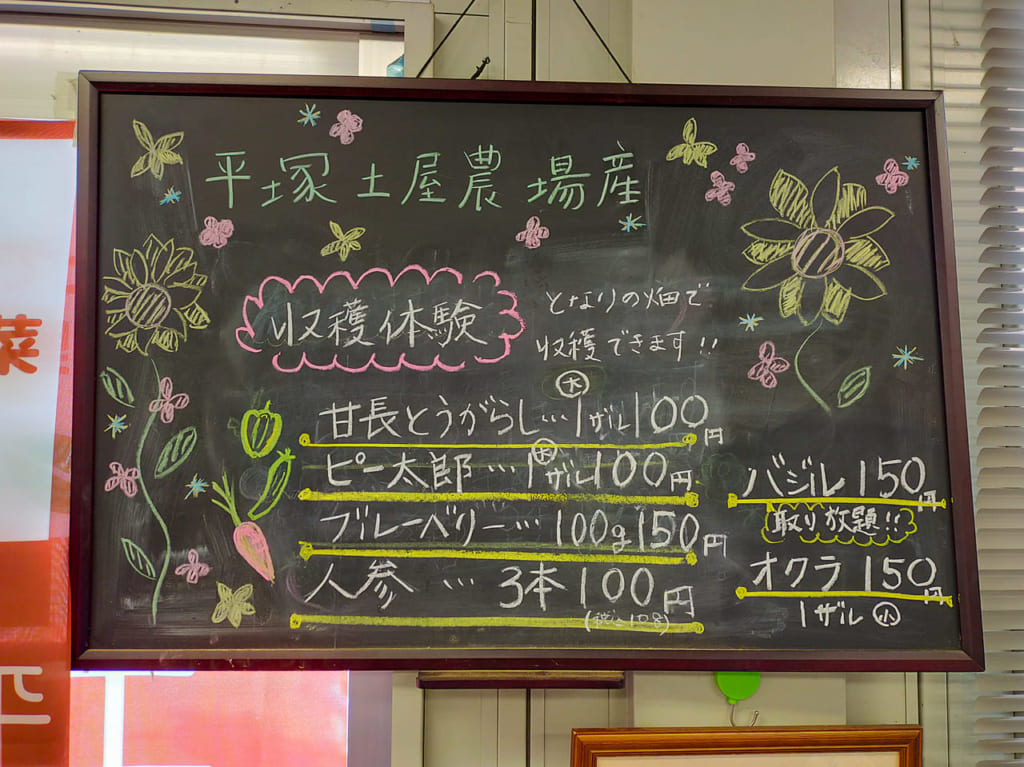 平塚土屋農場産
収穫体験
となりの畑で
収穫できます!!
甘長とうがらし…1ザル大100円
ピー太郎…1ザル大100円
ブルーベリー…100g150円
人参…3本100円
(税込108)
バジル150円
取り放題!!
オクラ150円
1ザル小
菜